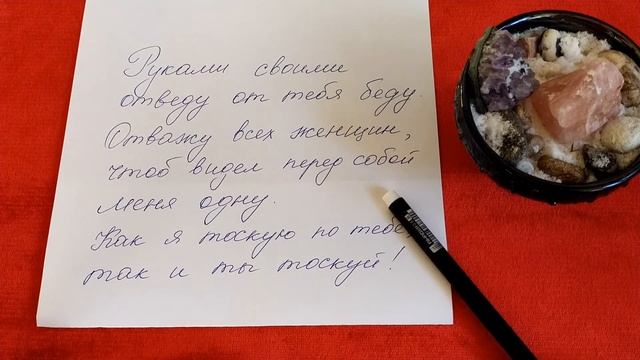 Руками своими
отведу от тебя беду.
Отважу всех женщин,
чтоб видел перед собой
меня одну.
Как я тоскую по тебе,
так и ты тоскуй!